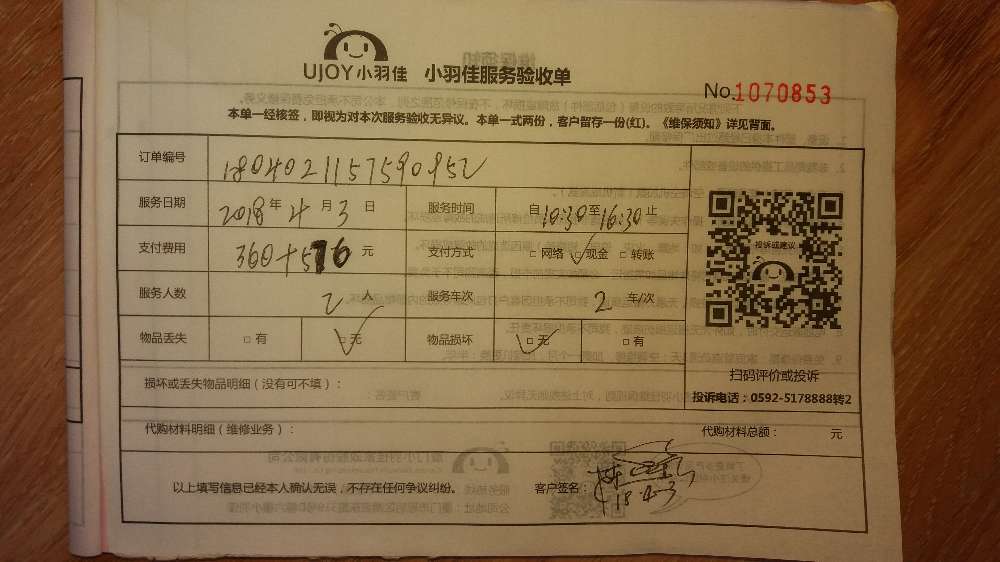 UJOY小羽佳 小羽佳服务验收单
No.1070853
本单一经核签，即视为对本次服务验收无异议。本单一式两份，客户留存一份(红)。《维保须知》详见背面。
订单编号 180402115759085
服务日期 2018年4月3日 服务时间 自10:30至16:30止
支付费用 360+576元 支付方式 □网络 □现金 □转账
投诉或建议
服务人数 2人 服务车次 2车/次
物品丢失 □有 □无 物品损坏 □无 □有
扫码评价或投诉
损坏或丢失物品明细（没有可不填）：
投诉电话：0592-5178888转2
代购材料明细（维修业务）： 代购材料总额： 元
以上填写信息已经本人确认无误，不存在任何争议纠纷。 客户签名：
18.4.3